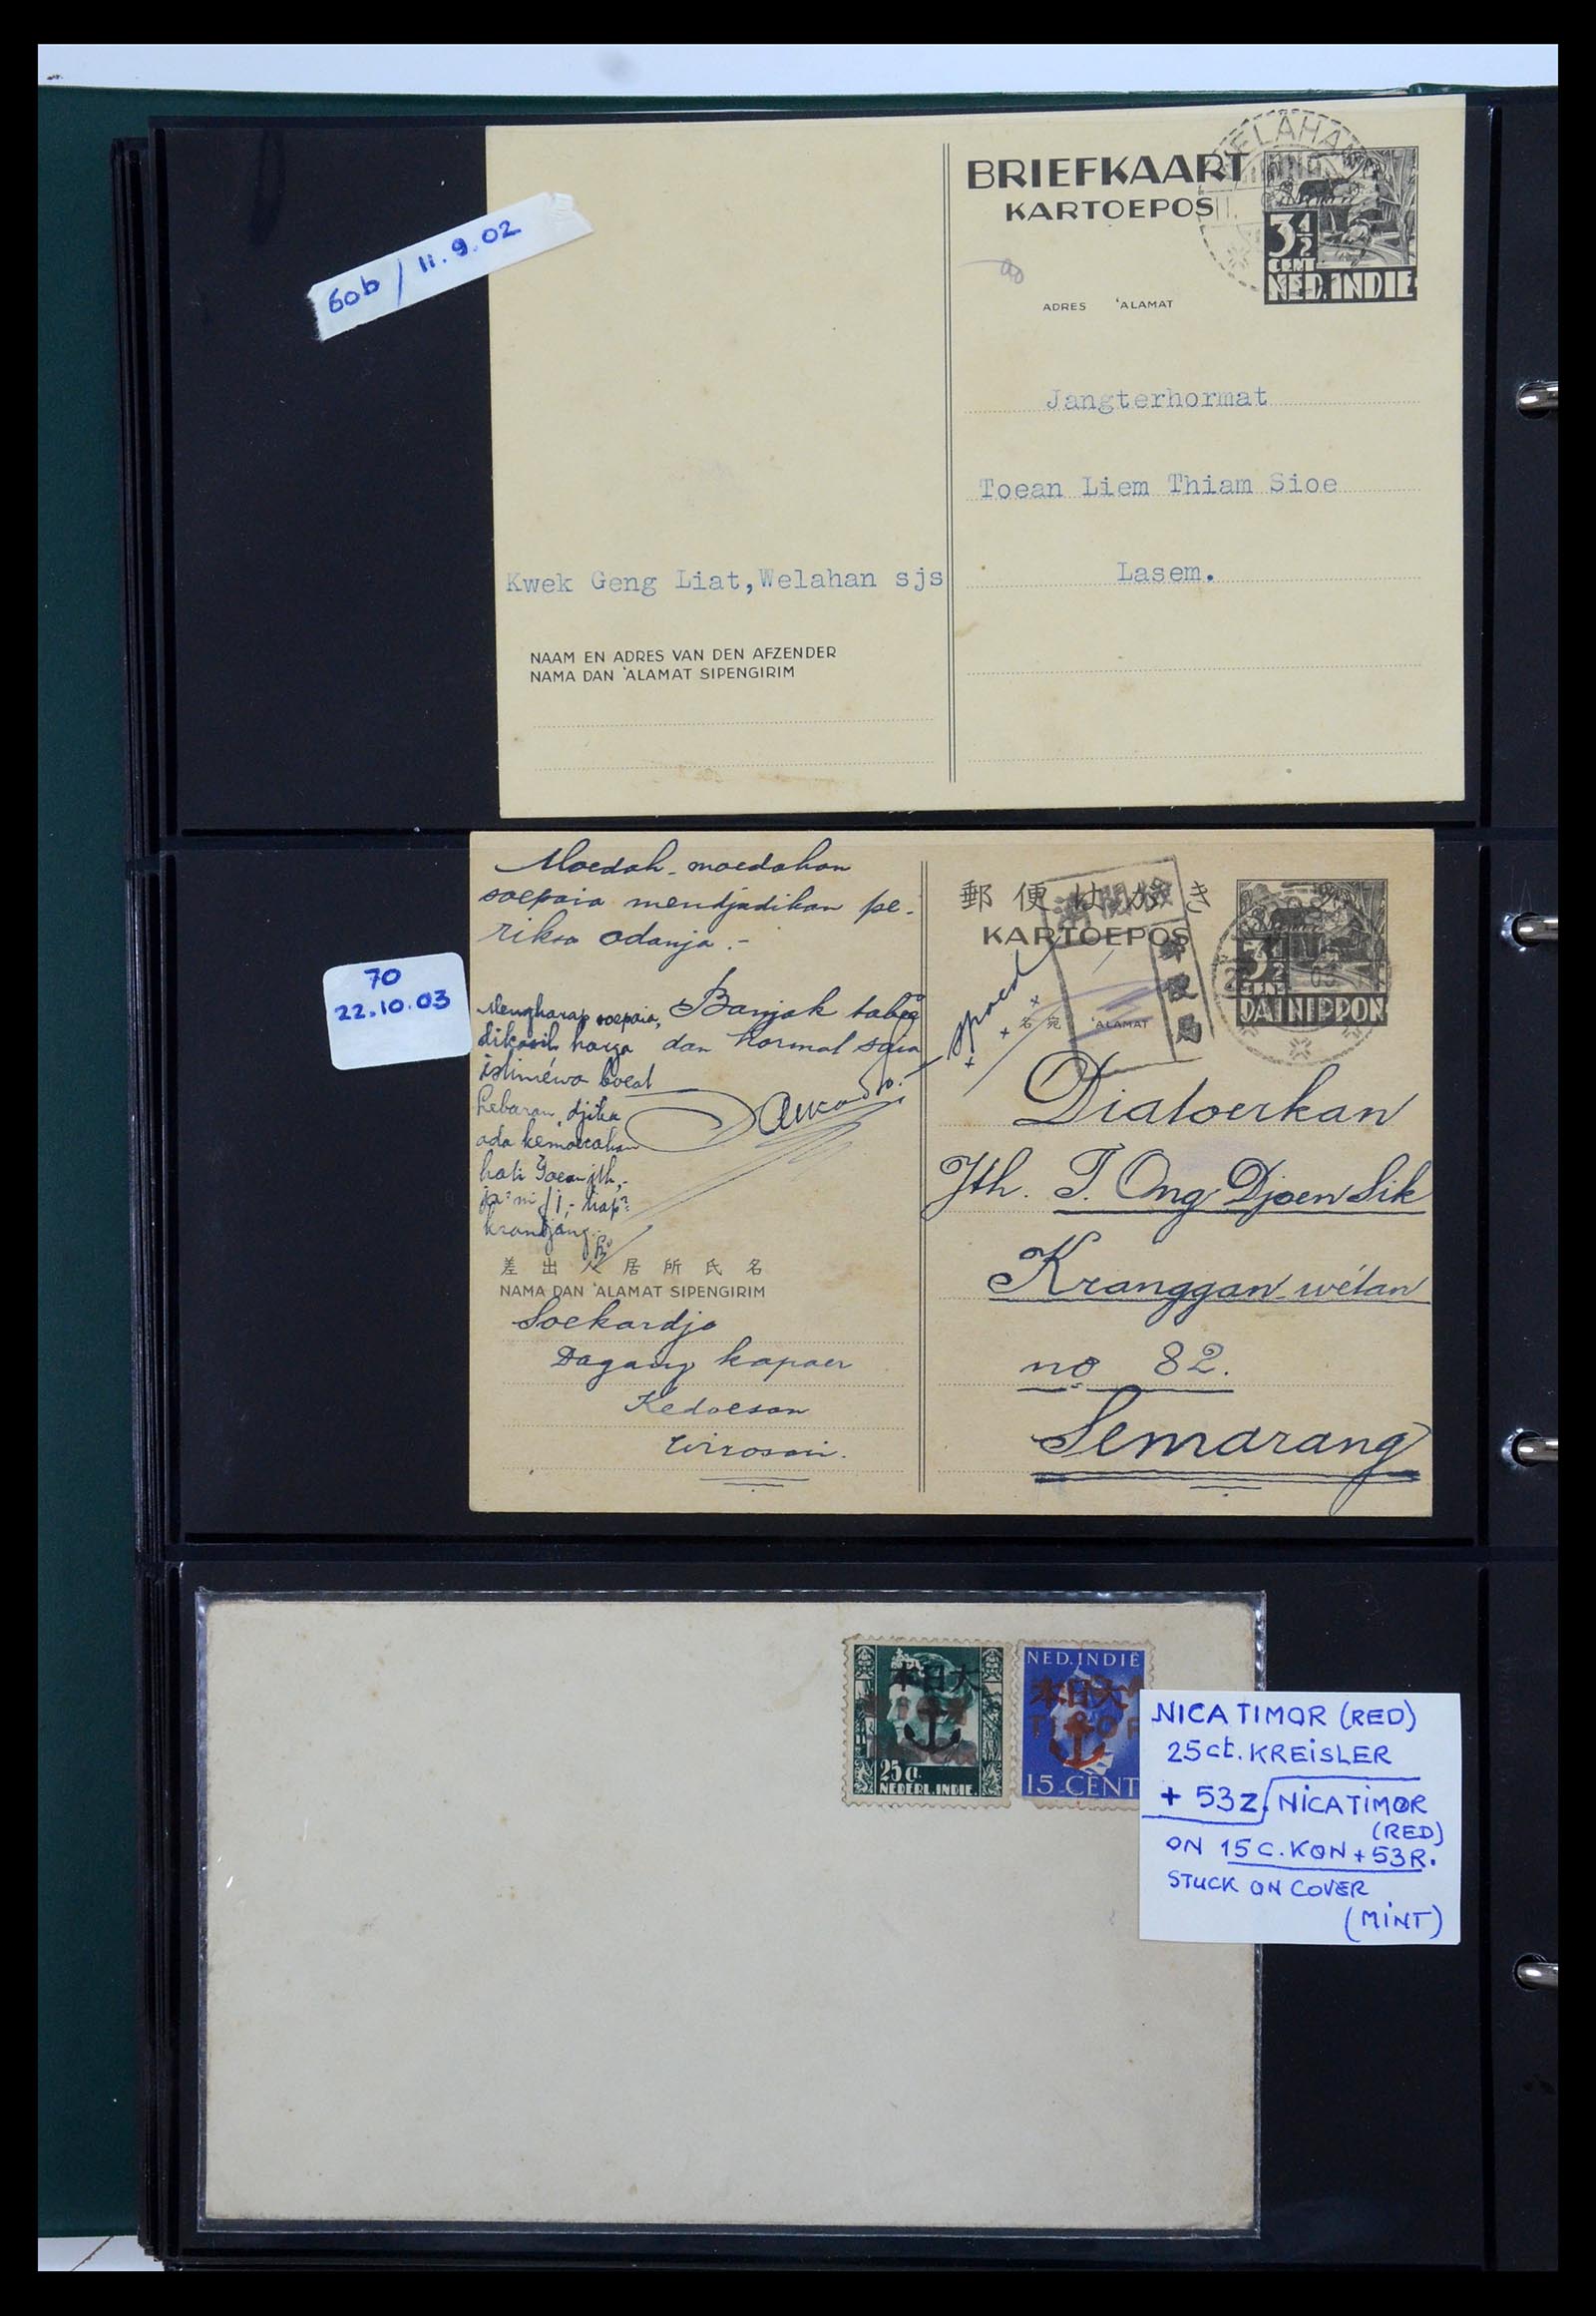 60b / 11.9.02
BRIEFKAART
KARTOEPOS
WELAHAN
3½
CENT
NED. INDIE
ADRES 'ALAMAT
Jangterhormat
Toean Liem Thiam Sioe
Lasem.
Kwek Geng Liat, Welahan sjs
NAAM EN ADRES VAN DEN AFZENDER
NAMA DAN 'ALAMAT SIPENGIRIM
70
22.10.03
Moedah-moedahan
soepaia mendjadikan pe-
riksa adanja.-
Banjak tabee
dan hormat saia
Mengharap soepaia,
dikasih harga
istiméwa boeat
Lebaran, djika
ada kemoerahan
hati Toean jth,-
ja2ni f 1,- tiap2
krandjang.
差出人居所氏名
NAMA DAN 'ALAMAT SIPENGIRIM
Soekardjo
Dagang kapoer
Kedoesan
Wirosari.
郵便はがき
KARTOEPOS
3½
CENT
DAI NIPPON
郵便局
名宛 'ALAMAT
spoed
Diatoerkan
Jth. T. Ong Djoen Sik
Kranggan-wétan
no 82.
Semarang
大日本
25 c.
NEDERL. INDIE.
NED. INDIË
大日本
15 CENT
NICA TIMOR (RED)
25ct. KREISLER
+ 53z. NICA TIMOR
(RED)
ON 15 C. KON + 53R.
STUCK ON COVER
(MINT)